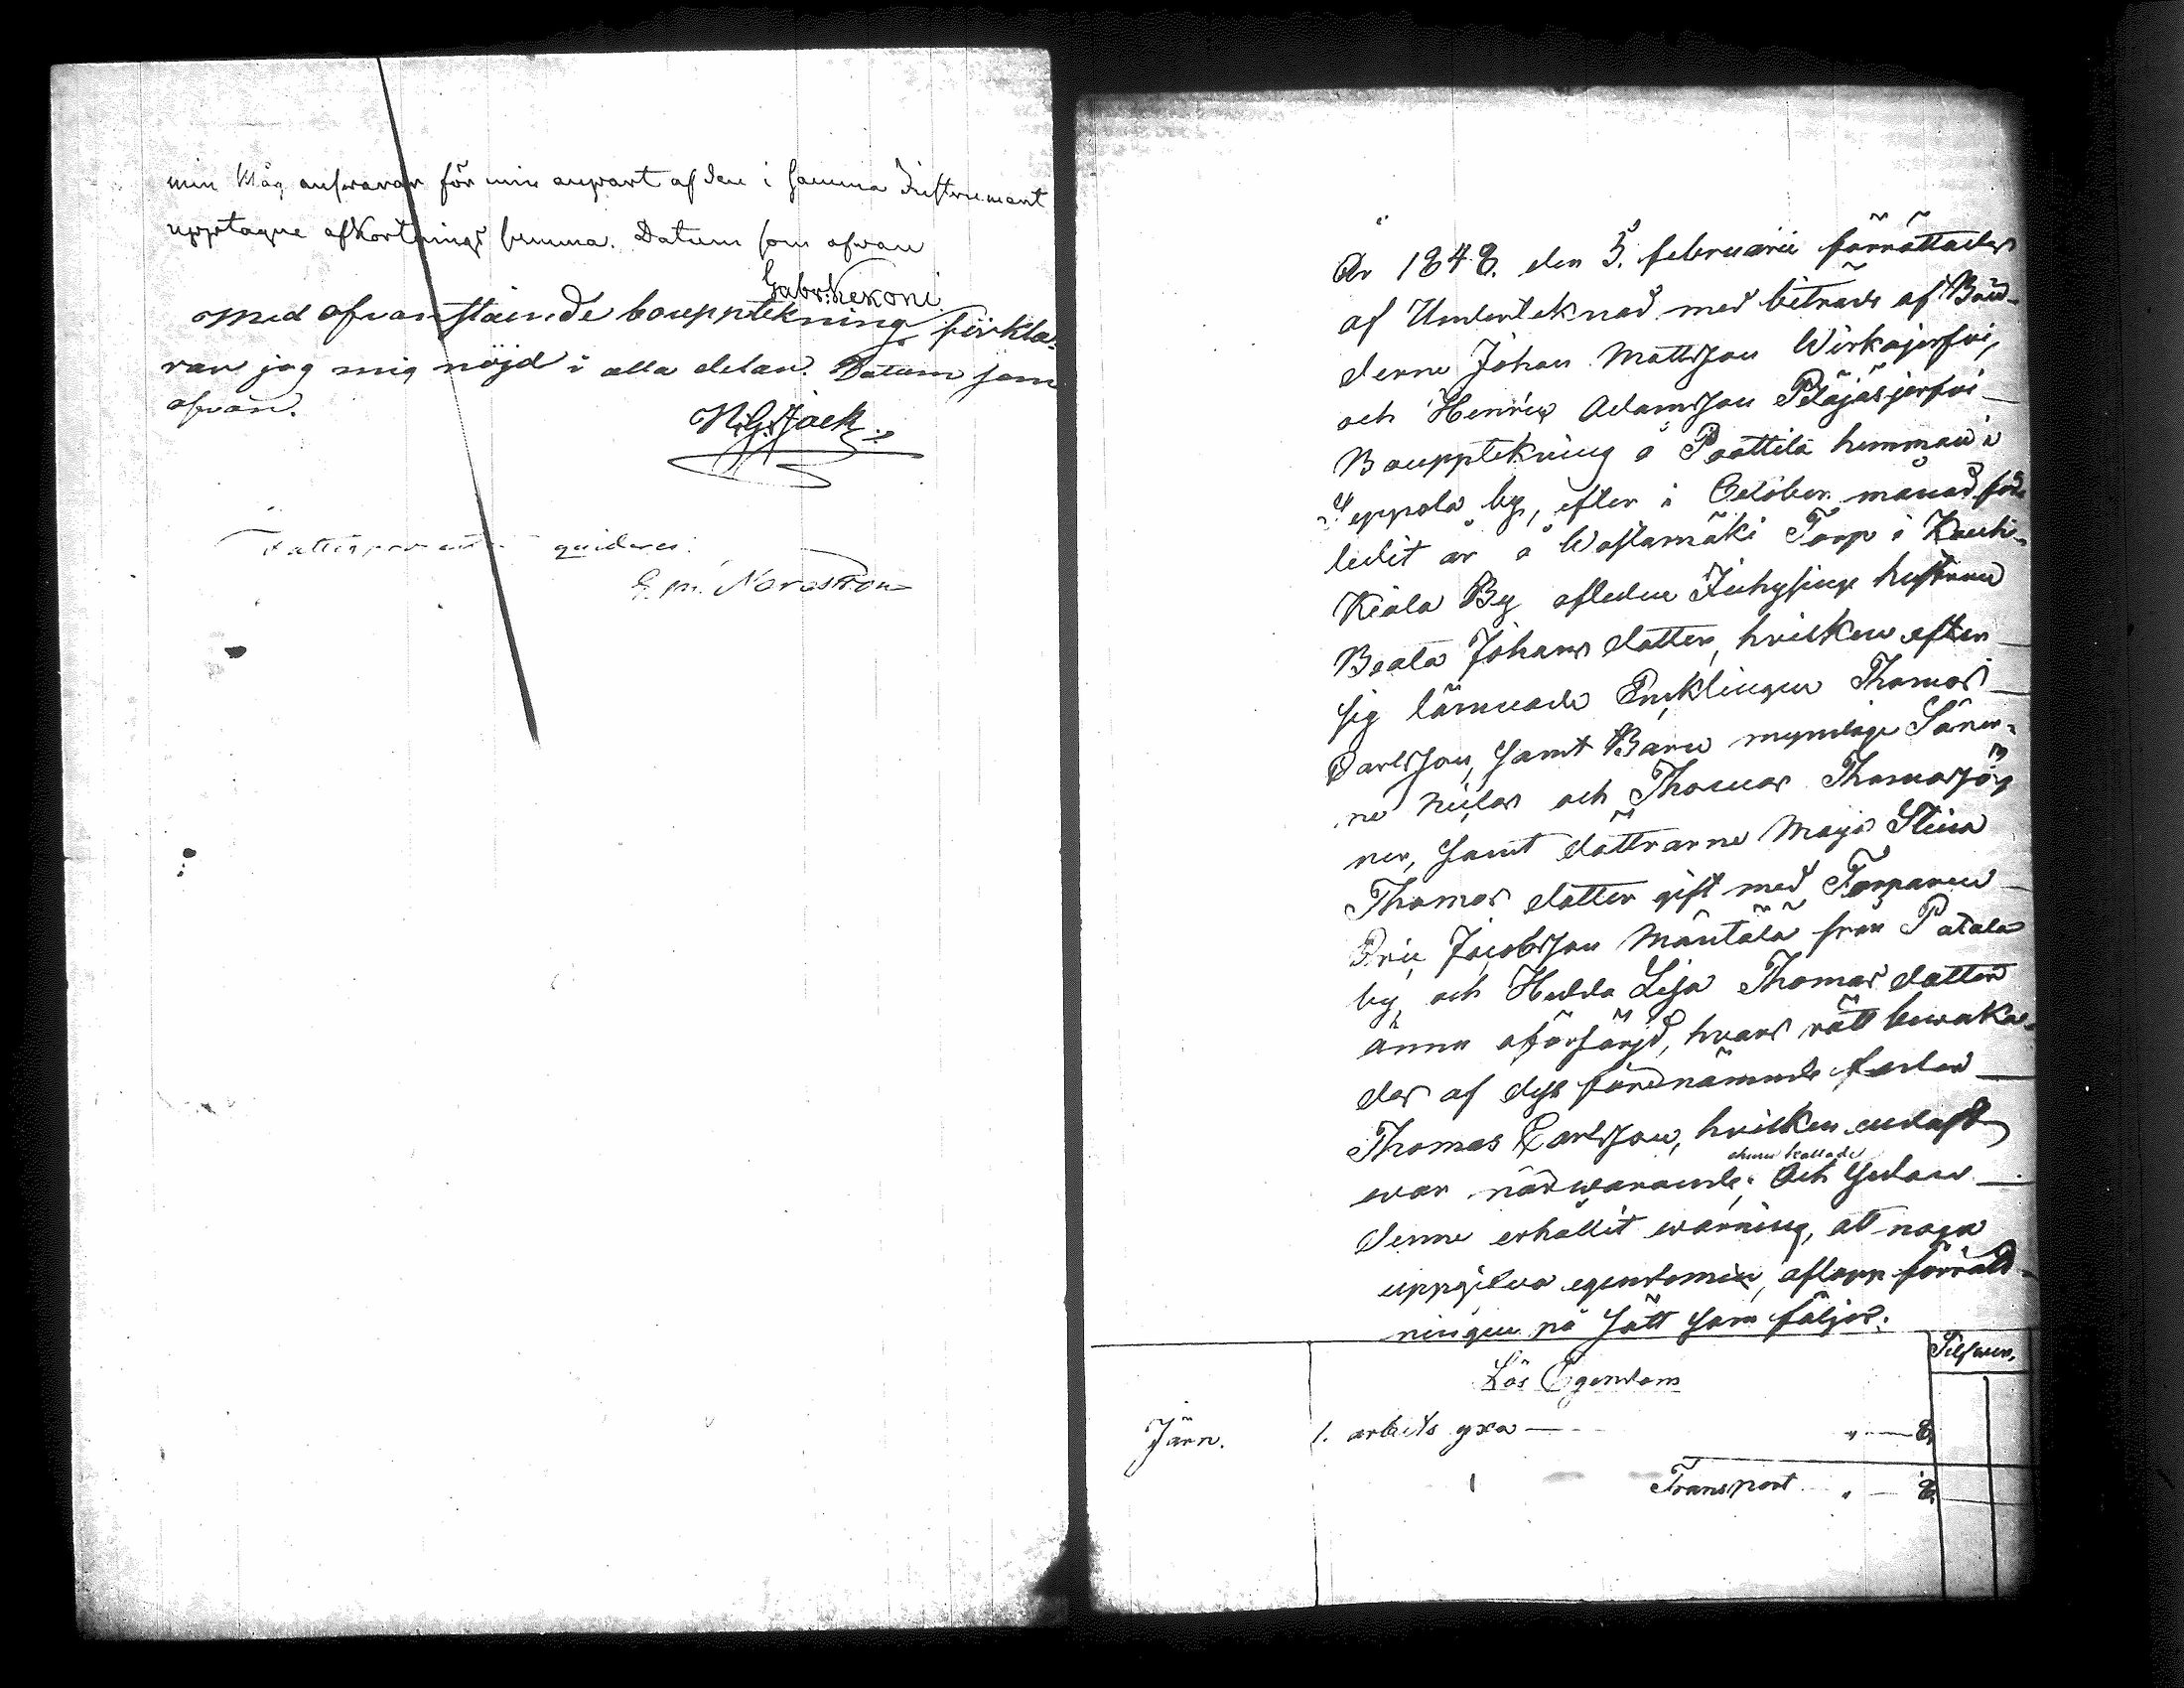 min Måg answarar för min anpart af den i samma Instrument
upptagne afkortnings summa. Datum som ofwan
Gabr. Kekoni
Med ofvanstående bouppteckning förkla-
rar jag mig nöjd i alla delar. Datum som
ofvan.
N. G. Jack
E. M. Nordström
År 1848. den 5. februarii förrättades
af Undertecknad med biträde af Bön-
derne Johan Mattsson Wirkajerfvi,
och Henric Adamsson Pääjäsjerfvi
Bouptekning å Paattila hemman i
Seppola by, efter i October månad sed-
ledit år å Wastamäki Torp i Kauhi-
Kiala By afledne Inhysings hustrun
Beata Johans dotter, hvilken efter
sig lämnade Encklingen Thomas
Carlsson, samt Barn myndige Söner-
ne Niilas och Thomas Thomassö-
ner, samt döttrarne Maja Stina
Thomas dotter gift med Torparen
Eric Jacobsson Mäntälä från Patala
by, och Hedda Lisa Thomas dotter
ännu oförsörjd, hvars rätt bewaka-
des af dess förenämnde fader
Thomas Carlsson, hvilken endast
war närwarande. Och sedan
denne erhållit warning, att noga
uppgifva egendomen, aflopp förrätt-
ningen på sätt som följer:
Lös Egendom
Silfwer.
Järn. 1. arbets yxa — " — 8,
Transport " — 8,